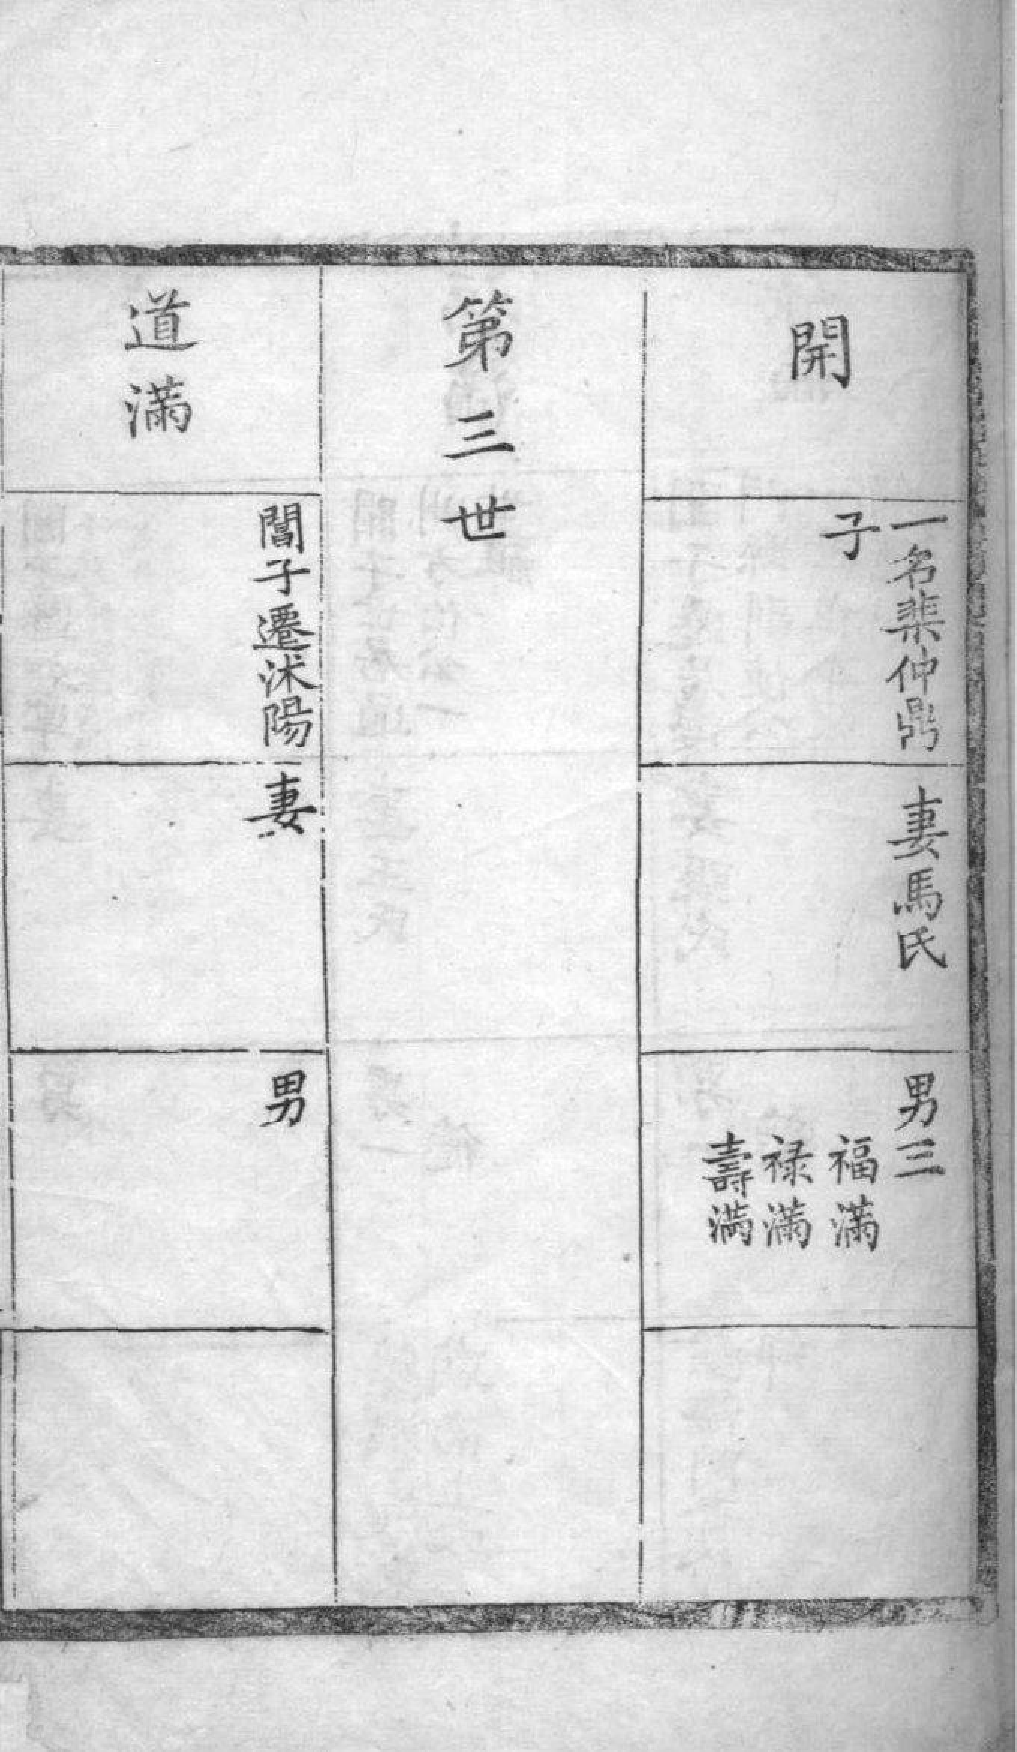 開
一名棐仲鼎
子
妻馬氏
男三
福滿
祿滿
壽滿
第三世
道滿
闒子遷沭陽
妻
男